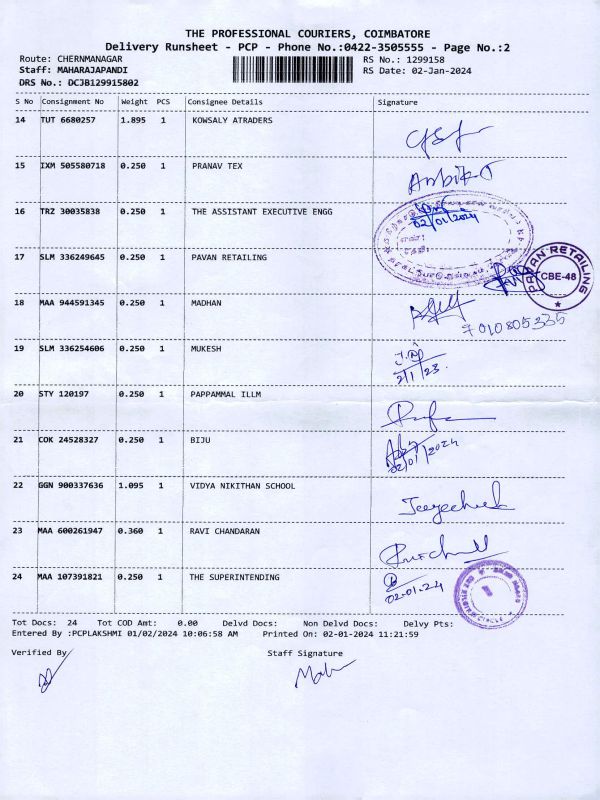 THE PROFESSIONAL COURIERS, COIMBATORE
Delivery Runsheet - PCP - Phone No.:0422-3505555 - Page No.:2
Route: CHERNMANAGAR RS No.: 1299158
Staff: MAHARAJAPANDI RS Date: 02-Jan-2024
DRS No.: DCJB129915802
S No Consignment No Weight PCS Consignee Details Signature
14 TUT 6680257 1.895 1 KOWSALY ATRADERS
15 IXM 505580718 0.250 1 PRANAV TEX
Ambika
16 TRZ 30035838 0.250 1 THE ASSISTANT EXECUTIVE ENGG
02/01/2024
17 SLM 336249645 0.250 1 PAVAN RETAILING
PAVAN RETAILING
CBE-48
18 MAA 944591345 0.250 1 MADHAN
7010805335
19 SLM 336254606 0.250 1 MUKESH
2/1/23.
20 STY 120197 0.250 1 PAPPAMMAL ILLM
21 COK 24528327 0.250 1 BIJU
02/01/2024
22 GGN 900337636 1.095 1 VIDYA NIKITHAN SCHOOL
23 MAA 600261947 0.360 1 RAVI CHANDARAN
24 MAA 107391821 0.250 1 THE SUPERINTENDING
02-01-24
Tot Docs: 24 Tot COD Amt: 0.00 Delvd Docs: Non Delvd Docs: Delvy Pts:
Entered By :PCPLAKSHMI 01/02/2024 10:06:58 AM Printed On: 02-01-2024 11:21:59
Verified By Staff Signature